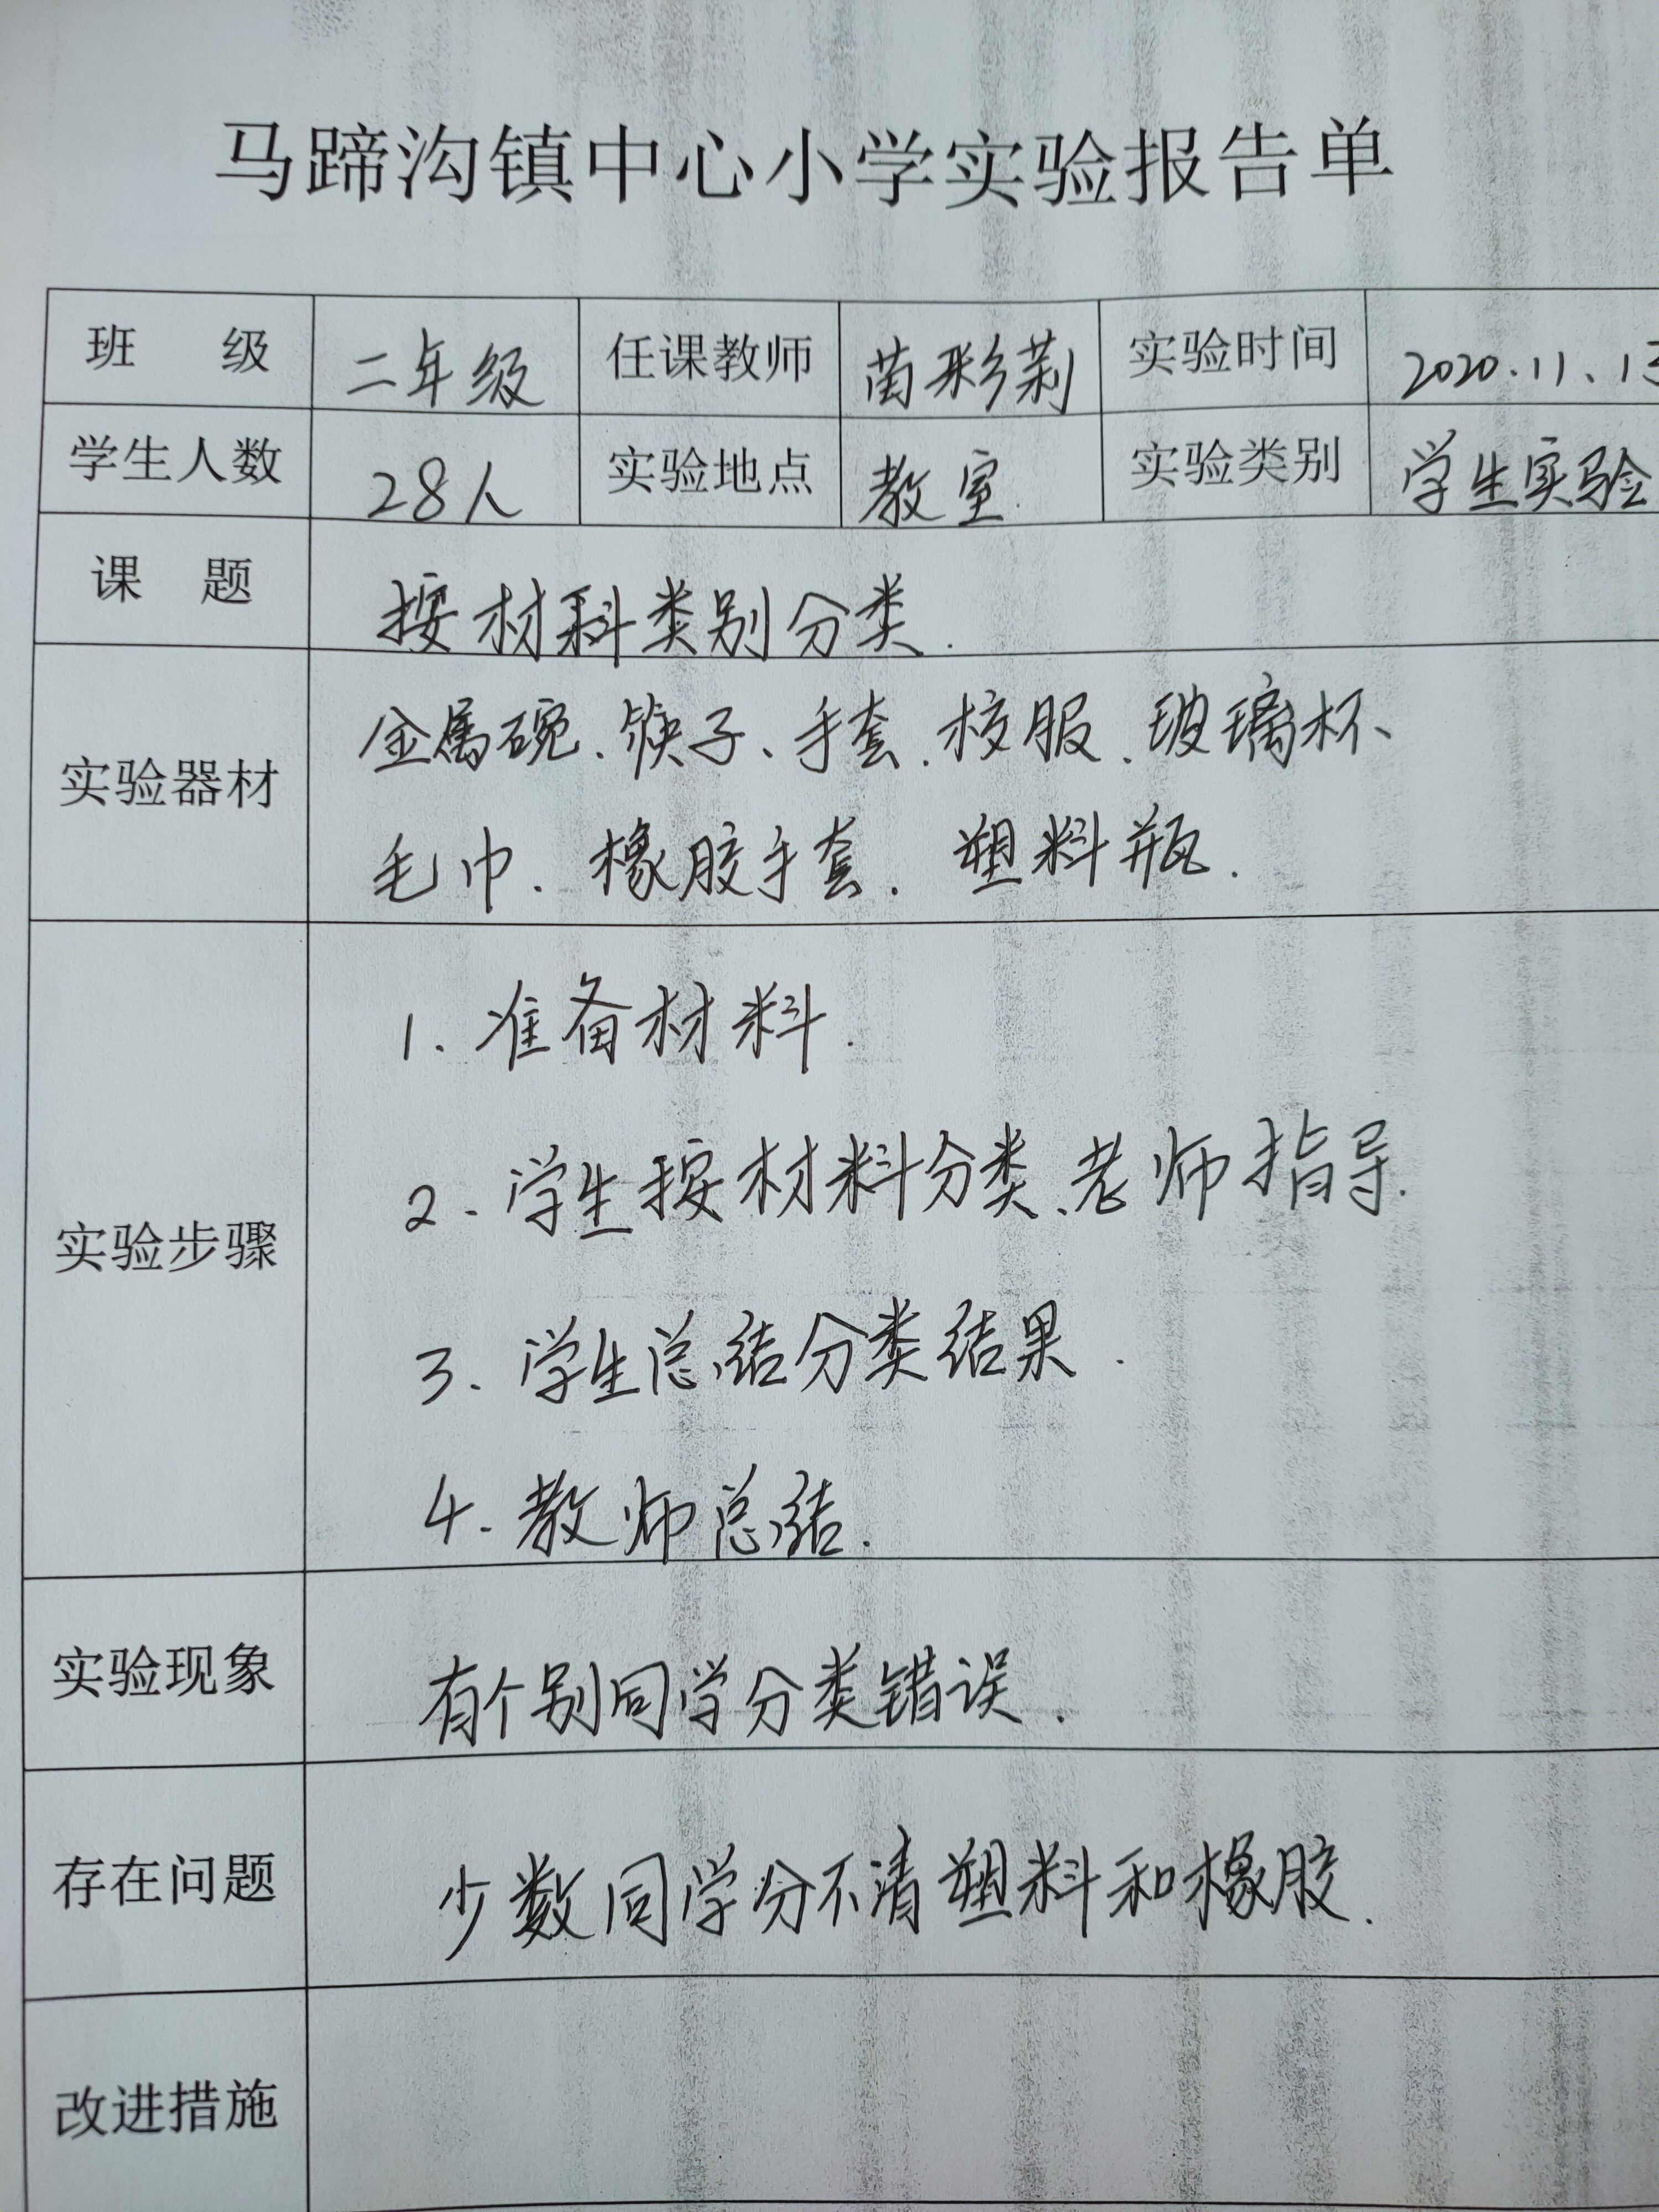 马蹄沟镇中心小学实验报告单
班 级 二年级 任课教师 苗彩莉 实验时间 2020.11.13
学生人数 28人 实验地点 教室. 实验类别 学生实验
课 题 按材料类别分类.
金属碗、筷子、手套、校服、玻璃杯、
实验器材
毛巾、橡胶手套、塑料瓶.
1. 准备材料.
2. 学生按材料分类、老师指导.
实验步骤
3. 学生总结分类结果.
4. 教师总结.
实验现象 有个别同学分类错误.
存在问题 少数同学分不清塑料和橡胶.
改进措施